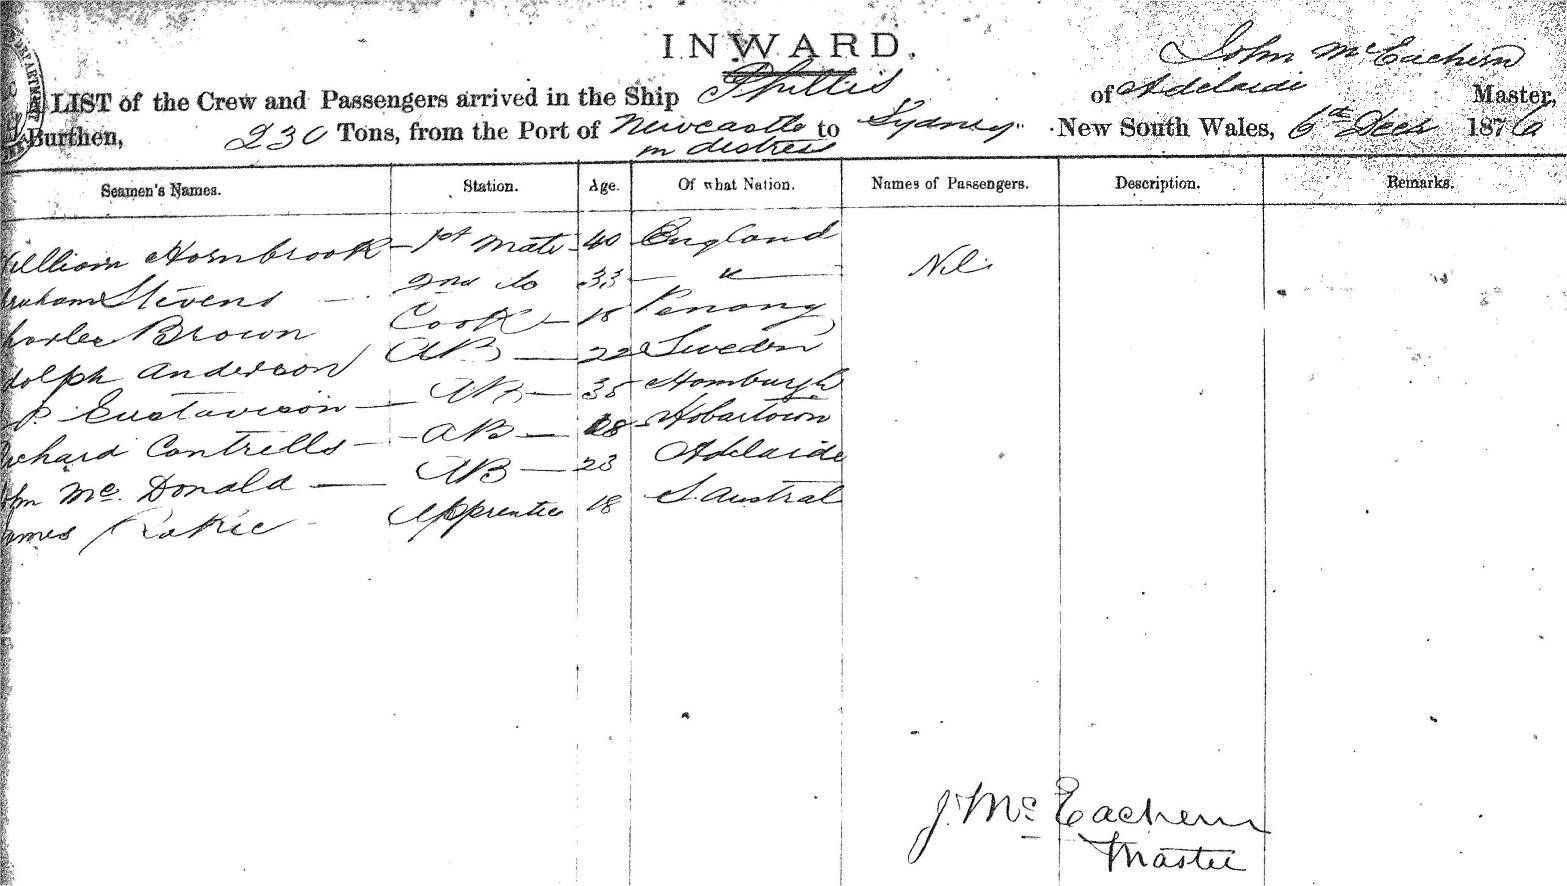 INWARD.
John McEachern
LIST of the Crew and Passengers arrived in the Ship Phillis of Adelaide Master,
Burthen, 230 Tons, from the Port of Newcastle to Sydney New South Wales, 6th Decr 1876
in distress
Seamen's Names. Station. Age. Of what Nation. Names of Passengers. Description. Remarks.
William Hornbrook – 1st Mate – 40 England Nil
Stevens — 2nd do 33 — " —
Charles Brown Cook – 18 Penang
Adolph Anderson AB — 22 Sweden
P. Gustavison — AB — 35 Hamburgh
Richard Cantrells — AB — 28 Hobartown
John Mc. Donald — AB — 23 Adelaide
James Apprentice 18 S. Austral
J. McEachern
Master